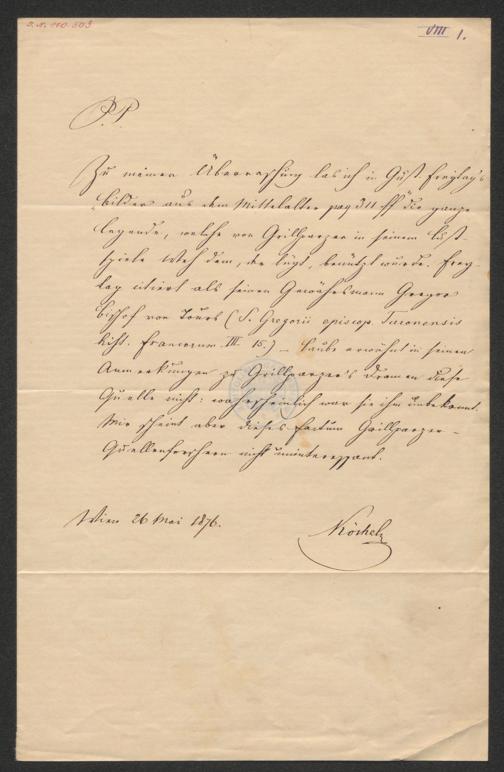 VIII 1.
P. P.
Zu meiner Überraschung las ich in Gust. Freytag's
Bilder aus dem Mittelalter pag 311 ff die ganze
Legende, welche von Grillparzer in seinem Lust-
spiele Weh dem, der lügt, benützt wurde. Frey-
tag citiert als seinen Gewährsmann Gregor
Bischof von Tours (S. Gregorii episcop. Turonensis
hist. Francorum III. 15.) – Laube erwähnt in seinen
Anmerkungen zu Grillparzer's Dramen diese
Quelle nicht: wahrscheinlich war sie ihm unbekannt.
Mir scheint aber dieses Factum Grillparzer-
Quellenforschern nicht uninteressant.
Wien 26 Mai 1876.
Köchel